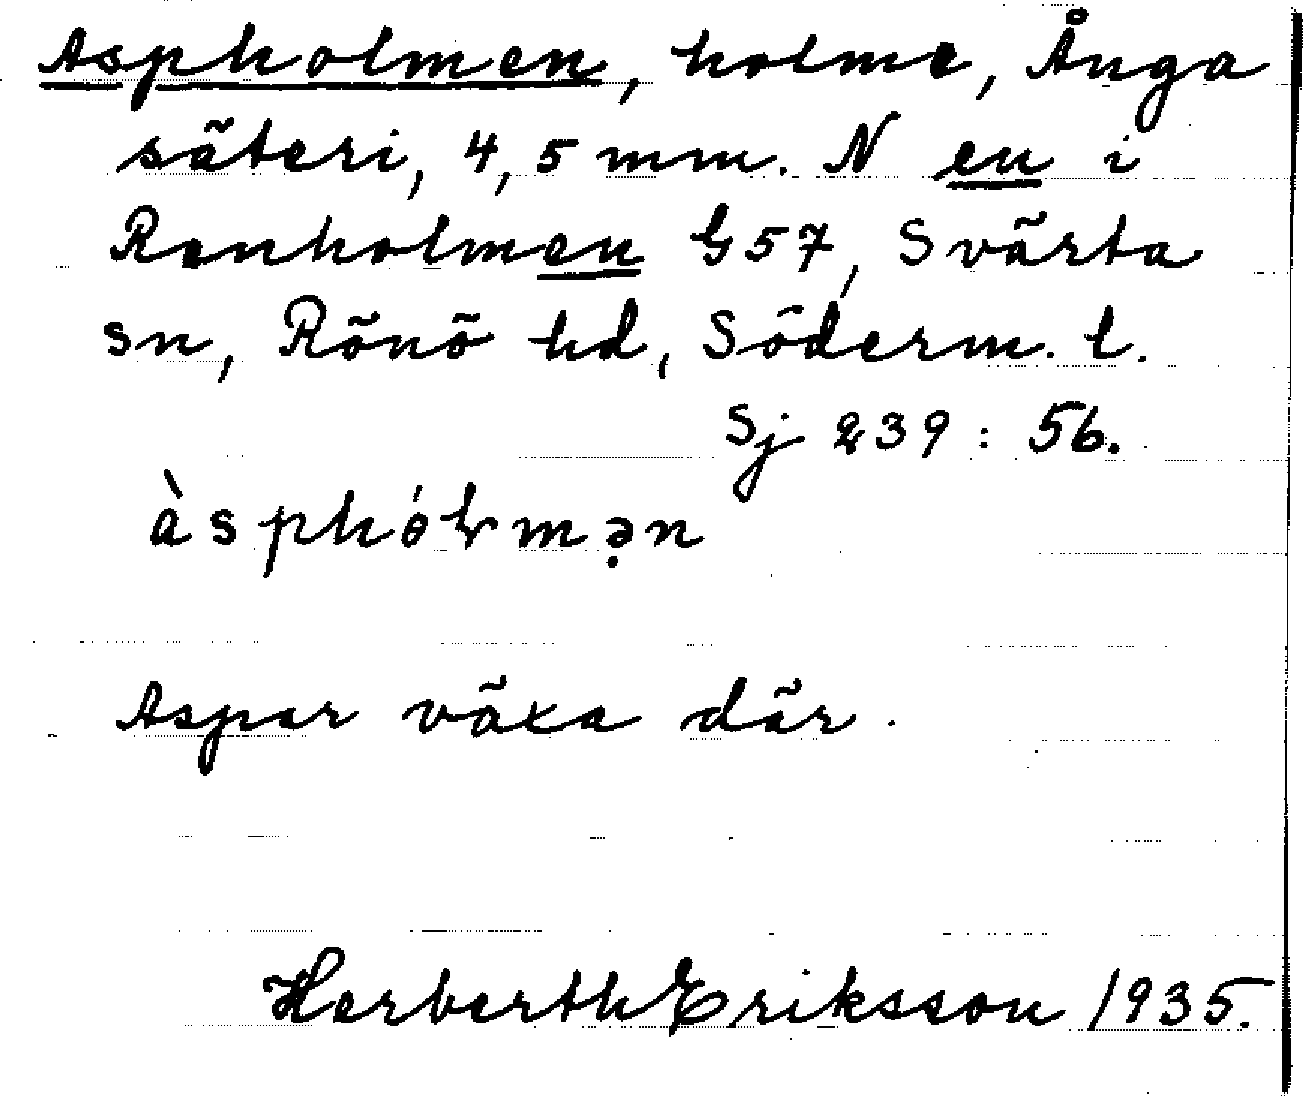 Aspholmen, holme, Ånga
säteri, 4,5 mm. N en i
Renholmen G57, Svärta
sn, Rönö hd, Söderm. l.
Sj 239 : 56.
àsphóɫmə̣n
Aspar växa där.
Herberth Eriksson 1935.